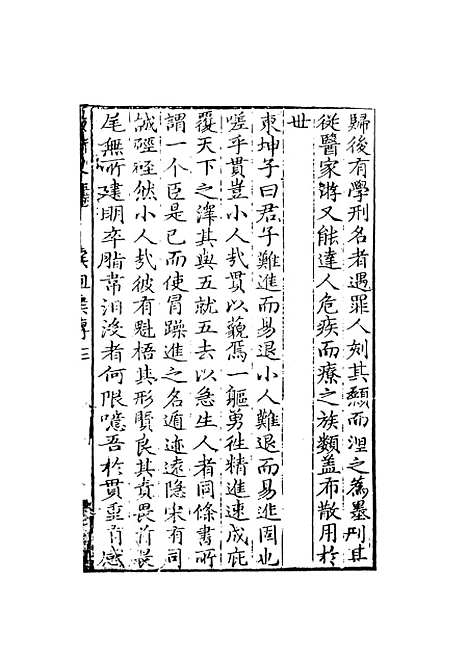 歸後有學刑名者遇罪人刻其顙而涅之為墨刑其
從醫家游又能達人危疾而療之族類盖布散用於
世
東坤子曰君子難進而易退小人難退而易進固也
嗟乎貫豈小人㢤貫以藐焉一軀勇徃精進速成庇
覆天下之澤其與五就五去以急生人者同條書所
謂一个臣是已而使冒躁進之名遁迹遠隱宋有同
誠硜硜然小人㢤彼有魁梧其形賢良其賁畏首畏
尾無所建明卒脂韋汨沒者何限噫吾於貫重有感